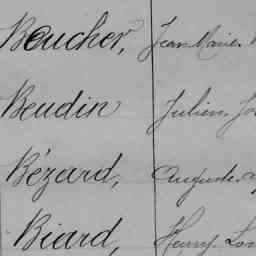 Boucher, Jean Marie
Beudin Julien
Bézard, Auguste
Biard, Henry